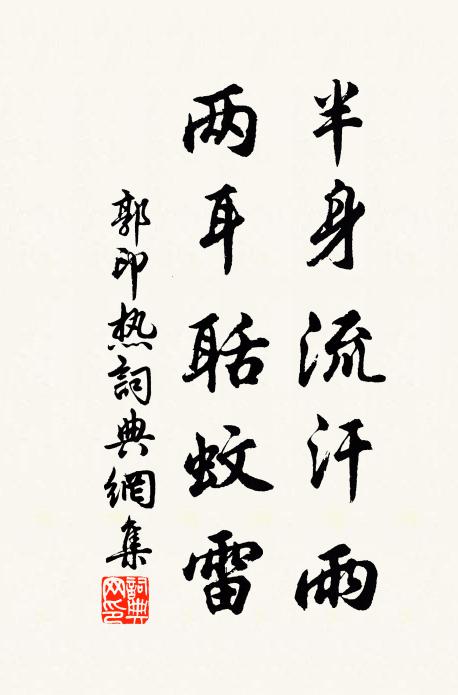 半身流汗雨
两耳聒蚊雷
郭印热詞典網集
詞典网印